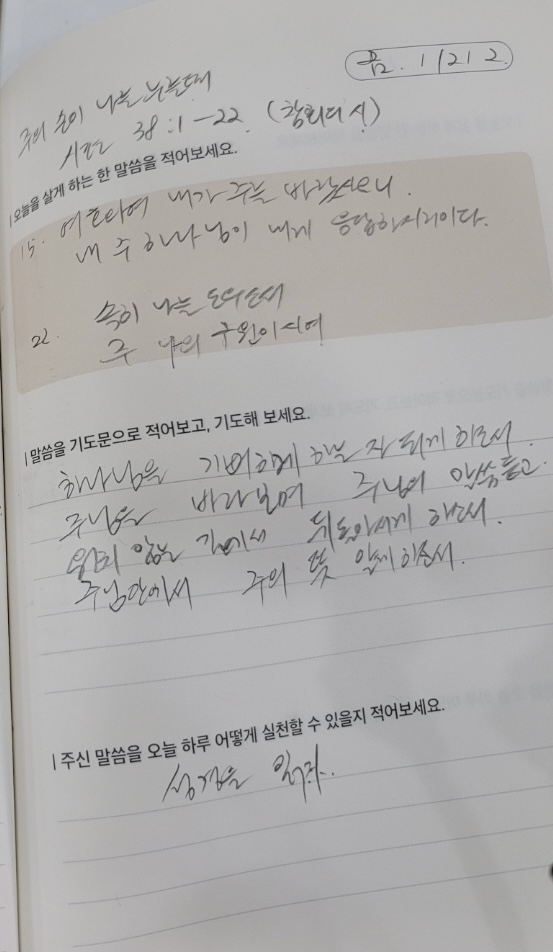 주의 손이 나를 누릅니다
시편 38:1-22 (참회의 시)
| 오늘을 살게 하는 한 말씀을 적어보세요.
15. 여호와여 내가 주를 바랐사오니.
내 주 하나님이 내게 응답하시리이다.
22. 속히 나를 도우소서
주 나의 구원이시여
| 말씀을 기도문으로 적어보고, 기도해 보세요.
하나님을 기뻐하게 하는 자 되게 하소서.
주님을 바라보며 주님의 말씀 듣고
길에서 뒤돌아서게 하소서.
주님안에서 주의 뜻 알게하소서.
| 주신 말씀을 오늘 하루 어떻게 실천할 수 있을지 적어보세요.
성경을 읽자.